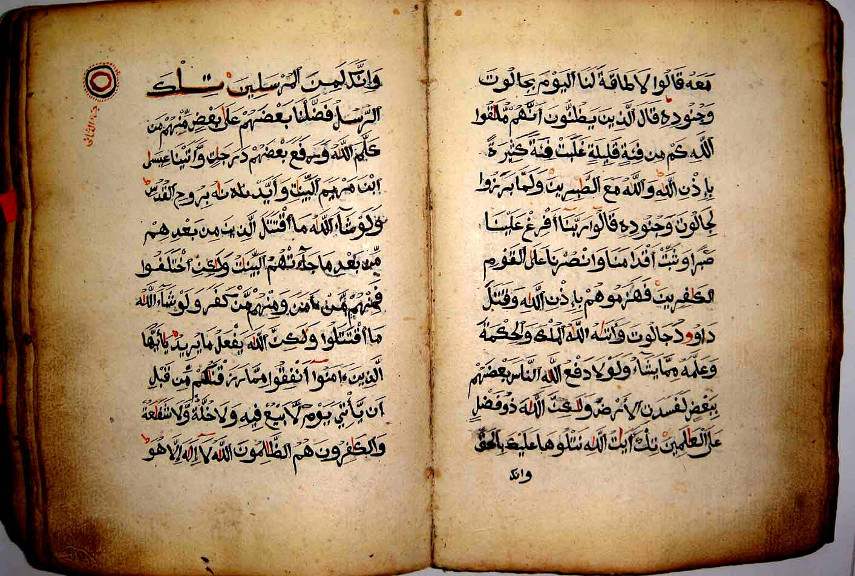 معه قالوا لا طاقة لنا اليوم بجالوت
وجنوده قال الذين يظنون انهم ملقوا
الله كم من فئة قليلة غلبت فئة كثيرة
بإذن الله والله مع الصبرين ولما برزوا
لجالوت وجنوده قالوا ربنا أفرغ علينا
صبرا وثبت أقدامنا وانصرنا على القوم
الكفرين فهزموهم بإذن الله وقتل
داوود جالوت وءاته الله الملك والحكمة
وعلمه مما يشاء ولولا دفع الله الناس بعضهم
ببعض لفسدت الأرض ولكن الله ذو فضل
على العلمين تلك ءايت الله نتلوها عليك بالحق
وانك
وانك لمن المرسلين تلك
الرسل فضلنا بعضهم على بعض منهم من
كلم الله ورفع بعضهم درجت وءاتينا عيسى
ابن مريم البينت وأيدنه بروح القدس
ولو شاء الله ما اقتتل الذين من بعدهم
من بعد ما جاءتهم البينت ولكن اختلفوا
فمنهم من ءامن ومنهم من كفر ولو شاء الله
ما اقتتلوا ولكن الله يفعل ما يريد يأيها
الذين ءامنوا أنفقوا مما رزقنكم من قبل
ان يأتي يوم لا بيع فيه ولا خلة ولا شفعة
والكفرون هم الظلمون الله لا اله الا هو